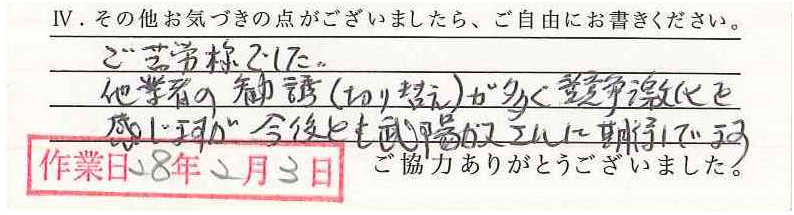 Ⅳ．その他お気づきの点がございましたら、ご自由にお書きください。
ご苦労様でした。
他業者の勧誘(切り替え)が多く競争激化を
感じますが今後とも武陽ガスさんに期待してます
作業日28年2月3日
ご協力ありがとうございました。